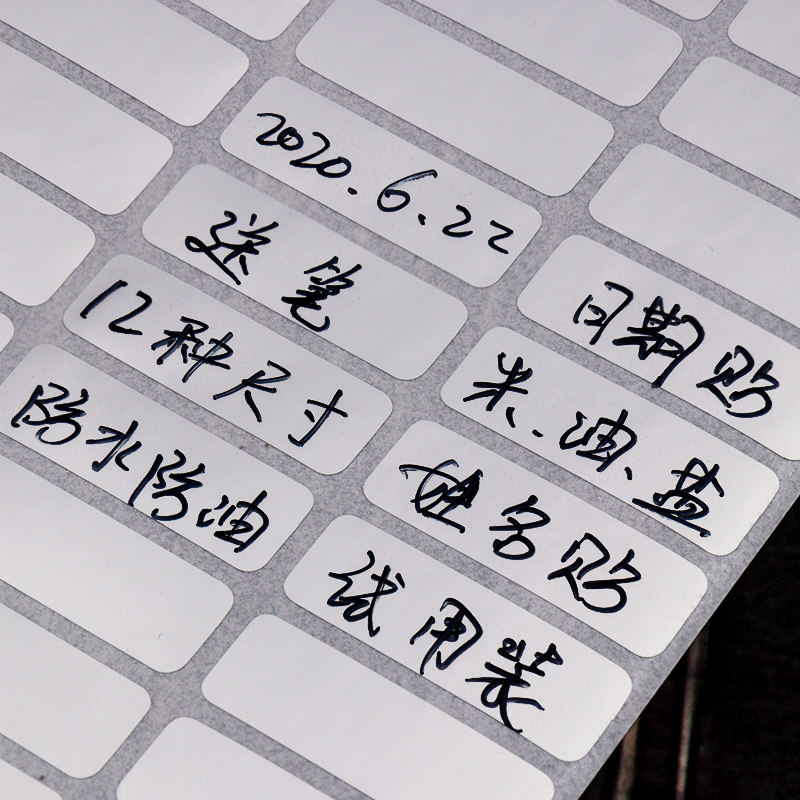 2020.6.22
送笔
12种尺寸
防水防油
日期贴
米、油、盐
姓名贴
试用装